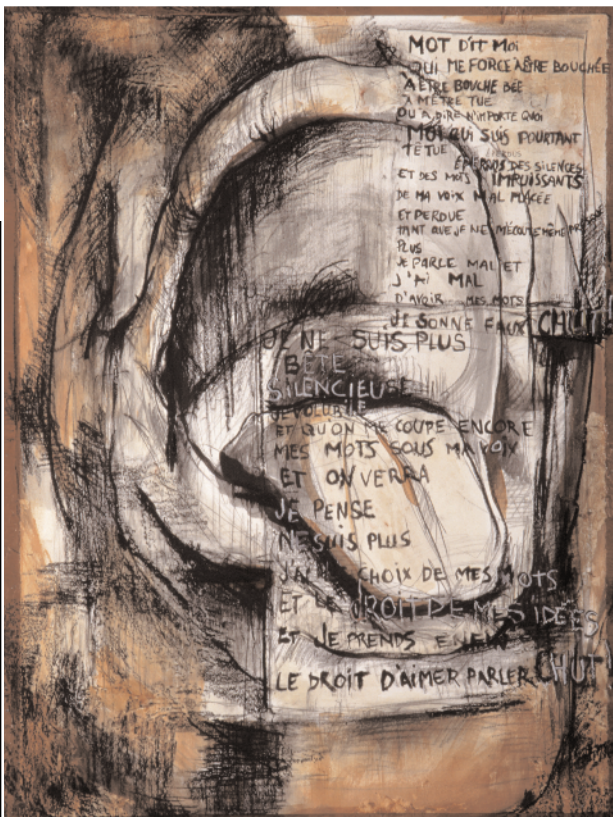 MOT DIT MOI
QUI ME FORCE À ÊTRE BOUCHÉE
À ÊTRE BOUCHE BÉE
À METRE TUE
OU À DIRE N'IMPORTE QUOI
MOI QUI SUIS POURTANT
TÊTUE
DES SILENCES
ET DES MOTS IMPUISSANTS
DE MA VOIX MAL PLACÉE
ET PERDUE
TANT QUE JE NE M'ÉCOUTE MÊME
PLUS
JE PARLE MAL ET
J'AI MAL
D'AVOIR MES MOTS
JE SONNE FAUX CHUT
JE NE SUIS PLUS
BÊTE
SILENCIEUSE
JE VOLUBILE
ET QU'ON ME COUPE ENCORE
MES MOTS SOUS MA VOIX
ET ON VERRA
JE PENSE
NE SUIS PLUS
J'AI CHOIX DE MES MOTS
ET LE DROIT DE MES IDÉES
ET JE PRENDS
LE DROIT D'AIMER PARLER CHUT